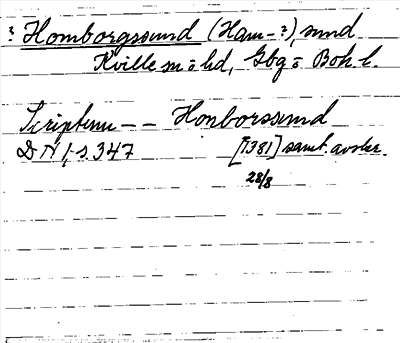 ? Homborgsund (Ham-?), sund
Kville sn o hd, Gbg o Boh. l.
Scriptum -- Honborssund
DN 1, s. 347 [1381] samt. avskr.
28/8